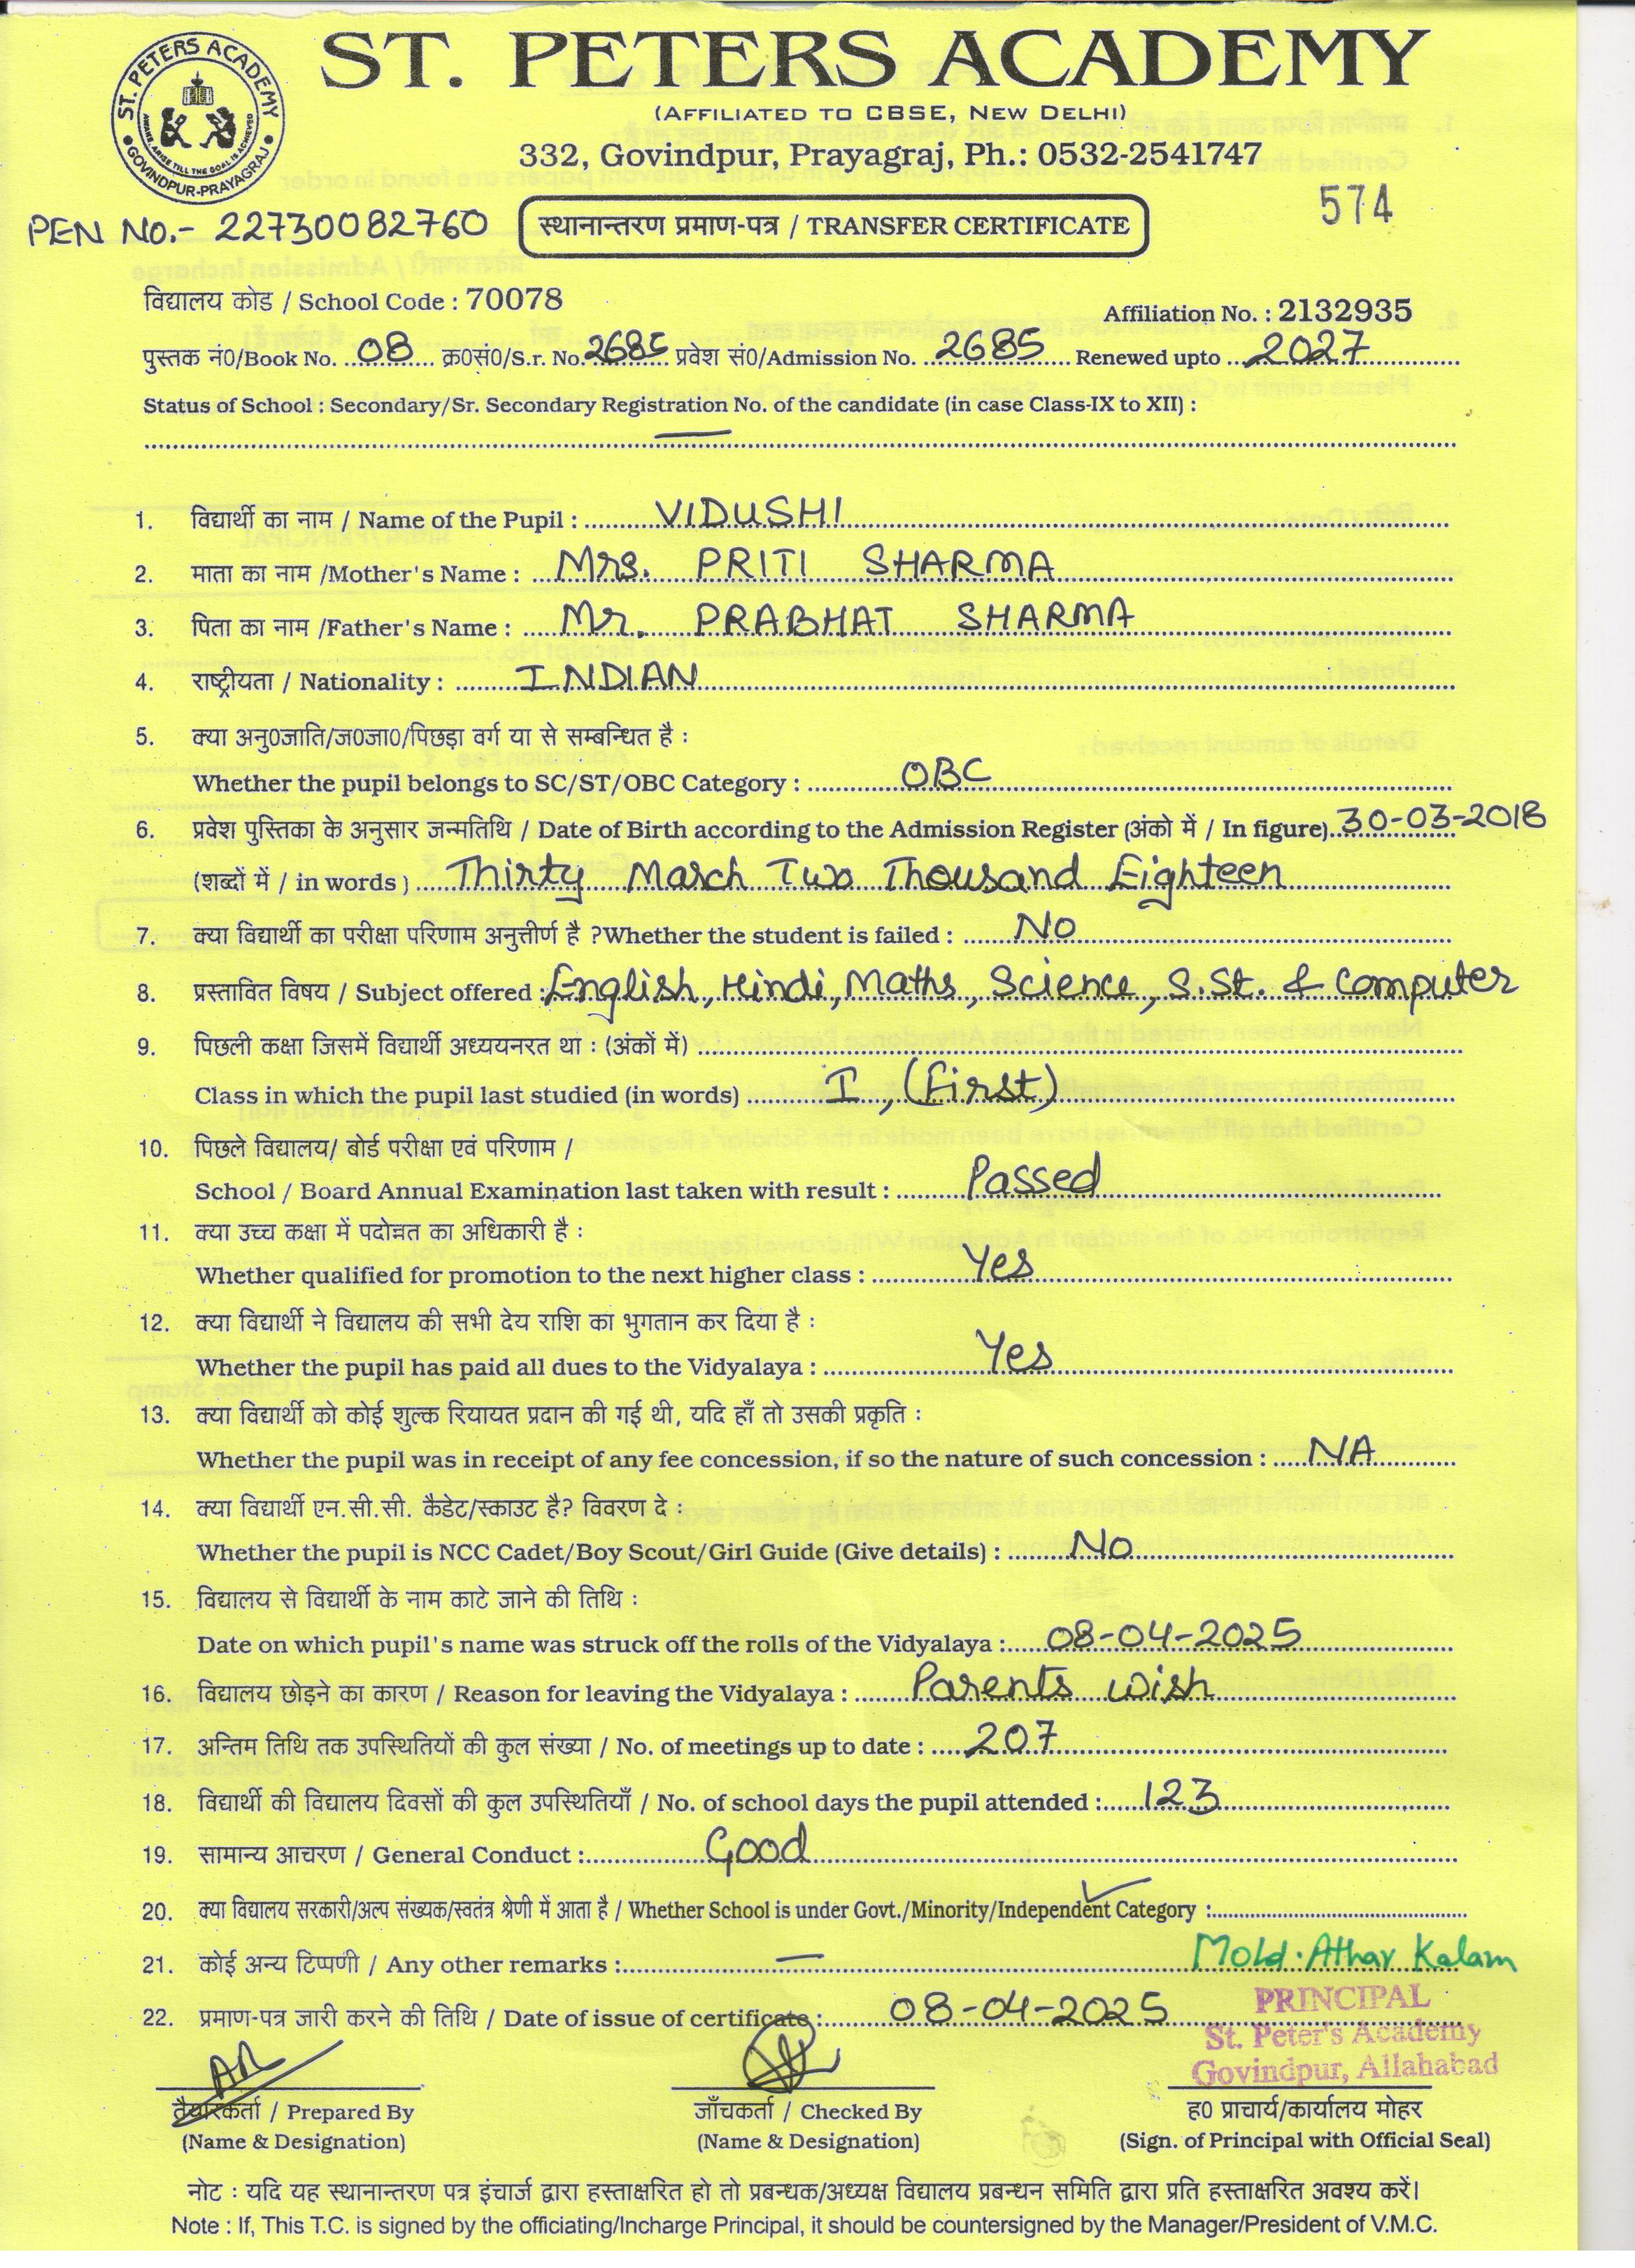 ST. PETERS ACADEMY
ST. PETERS ACADEMY
AWAKE, ARISE TILL THE GOAL IS ACHIEVED
GOVINDPUR-PRAYAGRAJ
(AFFILIATED TO CBSE, NEW DELHI)
332, Govindpur, Prayagraj, Ph.: 0532-2541747
574
PEN No.- 22730082760
स्थानान्तरण प्रमाण-पत्र / TRANSFER CERTIFICATE
विद्यालय कोड / School Code : 70078
Affiliation No. : 2132935
पुस्तक नं0/Book No. 08 क्र0सं0/S.r. No. 2685 प्रवेश सं0/Admission No. 2685 Renewed upto 2027
Status of School : Secondary/Sr. Secondary Registration No. of the candidate (in case Class-IX to XII) :
—
1. विद्यार्थी का नाम / Name of the Pupil : VIDUSHI
2. माता का नाम /Mother's Name : Mrs. PRITI SHARMA
3. पिता का नाम /Father's Name : Mr. PRABHAT SHARMA
4. राष्ट्रीयता / Nationality : INDIAN
5. क्या अनु0जाति/ज0जा0/पिछड़ा वर्ग या से सम्बन्धित है :
Whether the pupil belongs to SC/ST/OBC Category : OBC
6. प्रवेश पुस्तिका के अनुसार जन्मतिथि / Date of Birth according to the Admission Register (अंको में / In figure) 30-03-2018
(शब्दों में / in words ) Thirty March Two Thousand Eighteen
7. क्या विद्यार्थी का परीक्षा परिणाम अनुत्तीर्ण है ?Whether the student is failed : No
8. प्रस्तावित विषय / Subject offered : English, Hindi, Maths, Science, S.St. & Computer
9. पिछली कक्षा जिसमें विद्यार्थी अध्ययनरत था : (अंकों में)
Class in which the pupil last studied (in words) I, (First)
10. पिछले विद्यालय/ बोर्ड परीक्षा एवं परिणाम /
School / Board Annual Examination last taken with result : Passed
11. क्या उच्च कक्षा में पदोन्नत का अधिकारी है :
Whether qualified for promotion to the next higher class : Yes
12. क्या विद्यार्थी ने विद्यालय की सभी देय राशि का भुगतान कर दिया है :
Whether the pupil has paid all dues to the Vidyalaya : Yes
13. क्या विद्यार्थी को कोई शुल्क रियायत प्रदान की गई थी, यदि हाँ तो उसकी प्रकृति :
Whether the pupil was in receipt of any fee concession, if so the nature of such concession : NA
14. क्या विद्यार्थी एन.सी.सी. कैडेट/स्काउट है? विवरण दे :
Whether the pupil is NCC Cadet/Boy Scout/Girl Guide (Give details) : No
15. विद्यालय से विद्यार्थी के नाम काटे जाने की तिथि :
Date on which pupil's name was struck off the rolls of the Vidyalaya : 08-04-2025
16. विद्यालय छोड़ने का कारण / Reason for leaving the Vidyalaya : Parents wish
17. अन्तिम तिथि तक उपस्थितियों की कुल संख्या / No. of meetings up to date : 207
18. विद्यार्थी की विद्यालय दिवसों की कुल उपस्थितियाँ / No. of school days the pupil attended : 123
19. सामान्य आचरण / General Conduct : Good
20. क्या विद्यालय सरकारी/अल्प संख्यक/स्वतंत्र श्रेणी में आता है / Whether School is under Govt./Minority/Independent Category :
21. कोई अन्य टिप्पणी / Any other remarks : —
Mold. Athar Kalam
22. प्रमाण-पत्र जारी करने की तिथि / Date of issue of certificate : 08-04-2025
PRINCIPAL
St. Peter's Academy
Govindpur, Allahabad
तैयारकर्ता / Prepared By
(Name & Designation)
जाँचकर्ता / Checked By
(Name & Designation)
ह0 प्राचार्य/कार्यालय मोहर
(Sign. of Principal with Official Seal)
नोट : यदि यह स्थानान्तरण पत्र इंचार्ज द्वारा हस्ताक्षरित हो तो प्रबन्धक/अध्यक्ष विद्यालय प्रबन्धन समिति द्वारा प्रति हस्ताक्षरित अवश्य करें।
Note : If, This T.C. is signed by the officiating/Incharge Principal, it should be countersigned by the Manager/President of V.M.C.